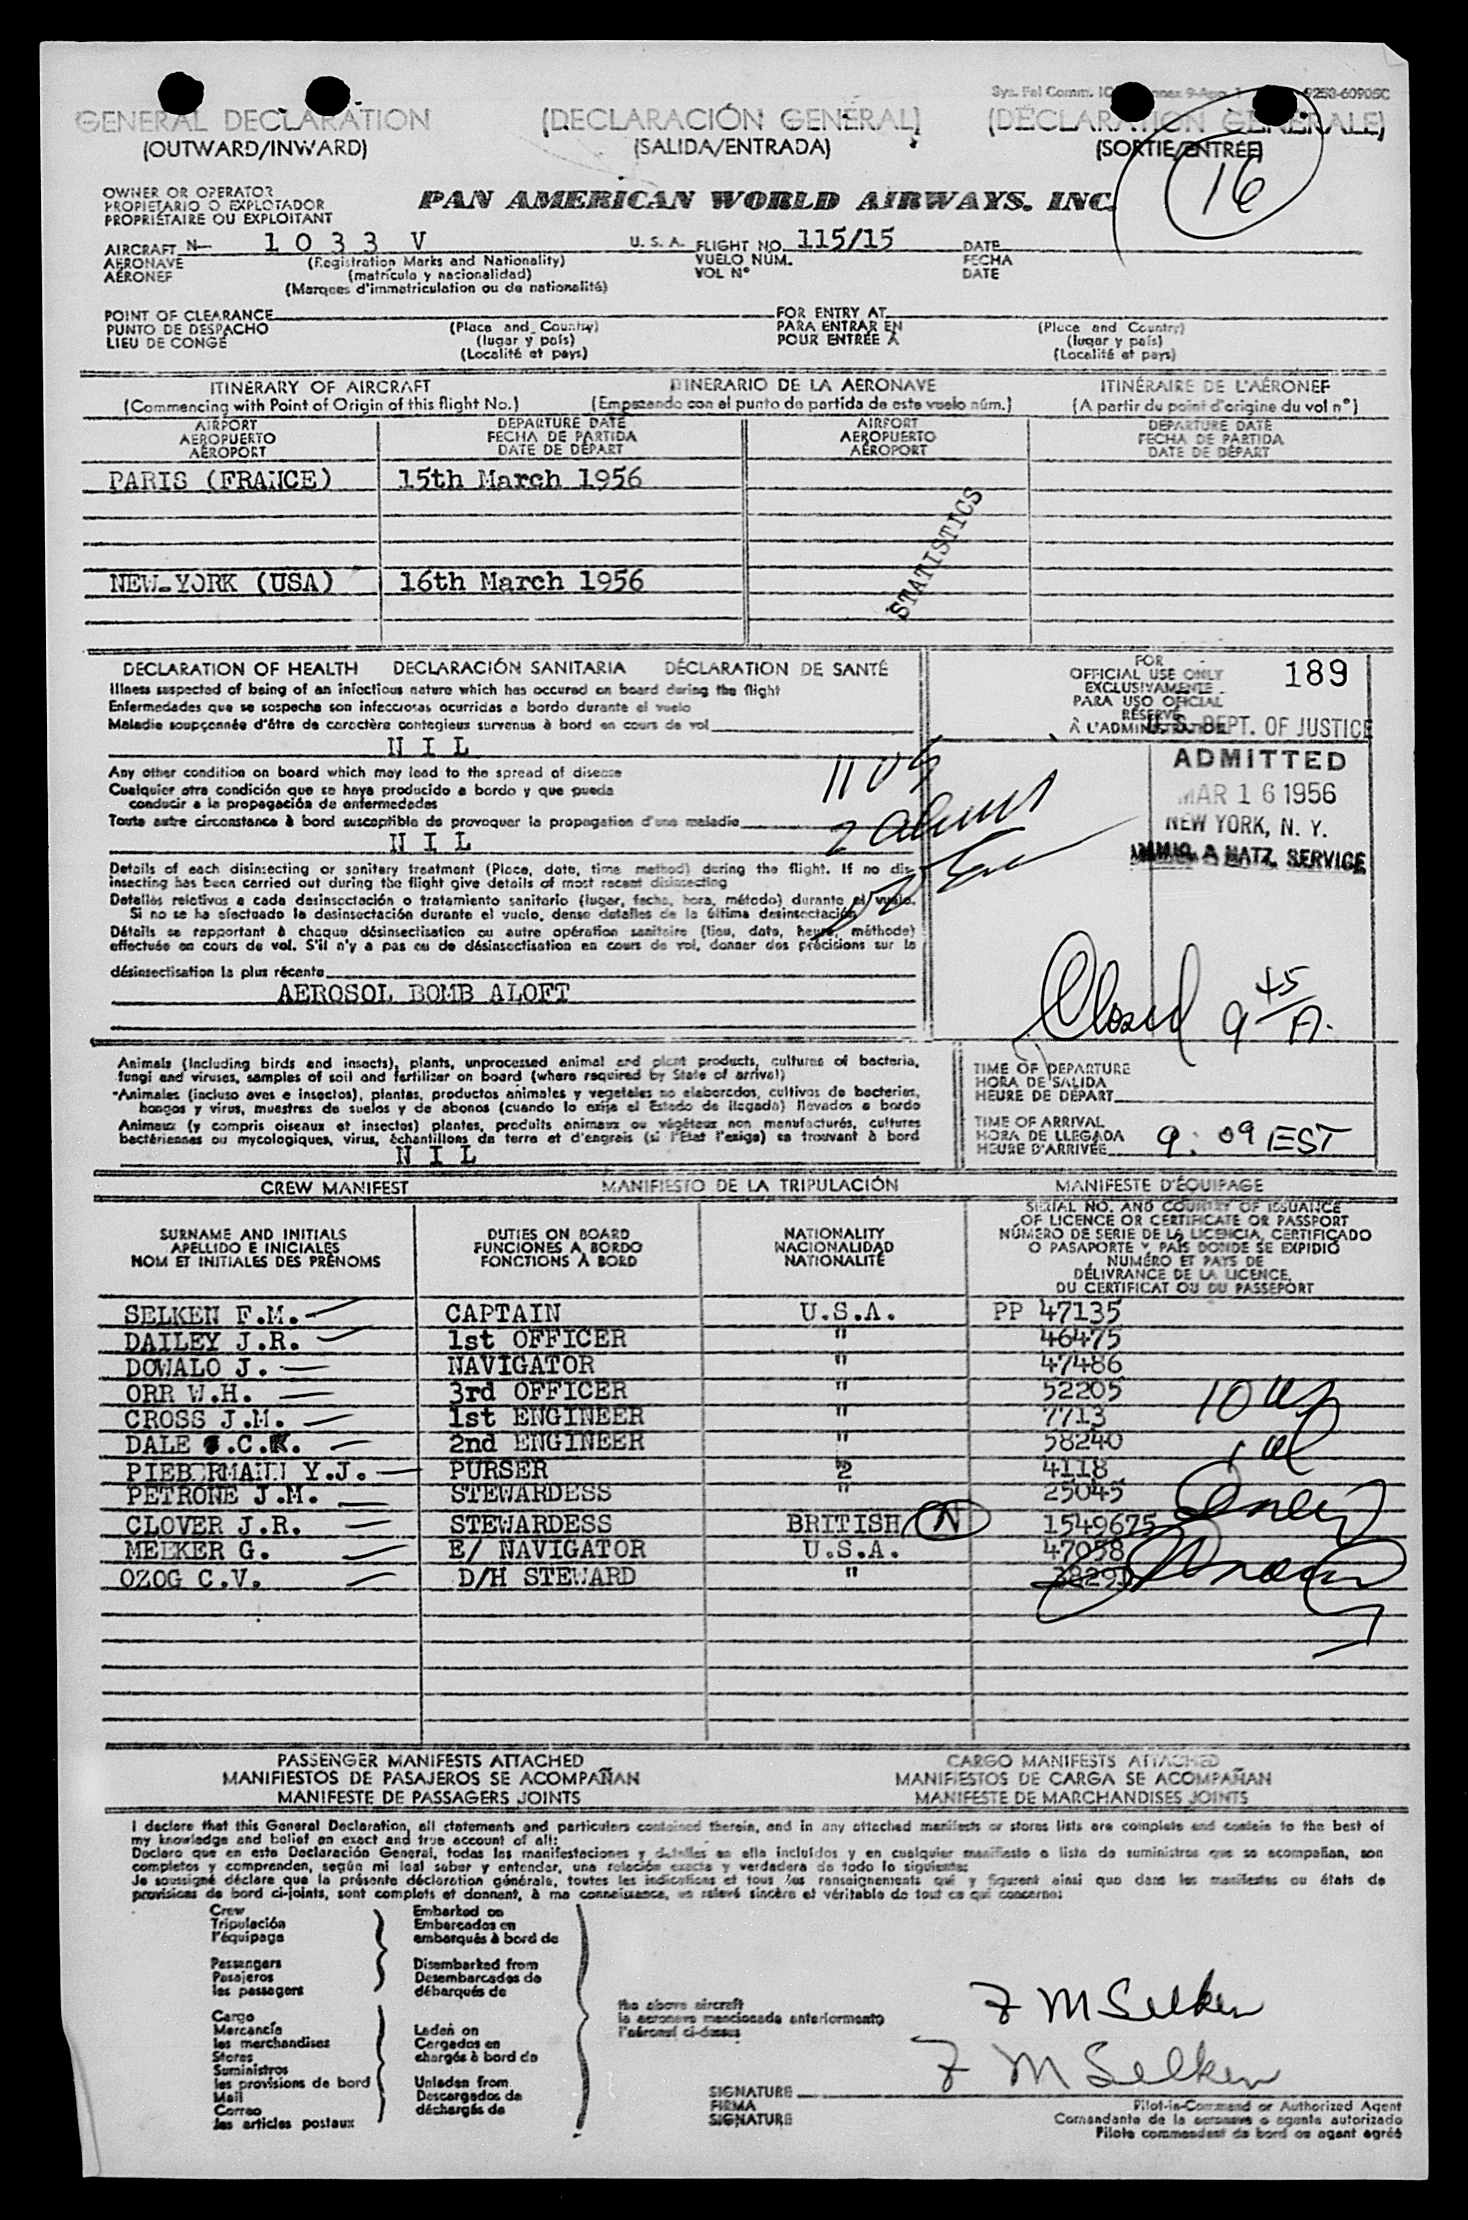 GENERAL DECLARATION (DECLARACIÓN GENERAL) (DÉCLARATION GENERALE)
(OUTWARD/INWARD) (SALIDA/ENTRADA) (SORTIE/ENTRÉE)
16
OWNER OR OPERATOR
PROPIETARIO O EXPLOTADOR
PROPRIÉTAIRE OU EXPLOITANT
PAN AMERICAN WORLD AIRWAYS. INC.
AIRCRAFT N- 1 0 3 3 V U. S. A. FLIGHT NO. 115/15 DATE
AERONAVE (Registration Marks and Nationality) VUELO NÚM. FECHA
AÉRONEF (matrícula y nacionalidad) VOL N° DATE
(Marques d'immatriculation ou de nationalité)
POINT OF CLEARANCE FOR ENTRY AT
PUNTO DE DESPACHO (Place and Country) PARA ENTRAR EN (Place and Country)
LIEU DE CONGÉ (lugar y país) POUR ENTRÉE À (lugar y país)
(Localité et pays) (Localité et pays)
ITINERARY OF AIRCRAFT ITINERARIO DE LA AERONAVE ITINÉRAIRE DE L'AÉRONEF
(Commencing with Point of Origin of this flight No.) (Empezando con el punto de partida de este vuelo núm.) (A partir du point d'origine du vol n°)
AIRPORT DEPARTURE DATE AIRPORT DEPARTURE DATE
AEROPUERTO FECHA DE PARTIDA AEROPUERTO FECHA DE PARTIDA
AÉROPORT DATE DE DÉPART AÉROPORT DATE DE DÉPART
PARIS (FRANCE) 15th March 1956
STATISTICS
NEW-YORK (USA) 16th March 1956
DECLARATION OF HEALTH DECLARACIÓN SANITARIA DÉCLARATION DE SANTÉ
Illness suspected of being of an infectious nature which has occured on board during the flight
Enfermedades que se sospecha son infecciosas ocurridas a bordo durante el vuelo
Maladie soupçonnée d'être de caractère contagieux survenue à bord en cours de vol
N I L
Any other condition on board which may lead to the spread of disease
Cualquier otra condición que se haya producido a bordo y que pueda
conducir a la propagación de enfermedades
Toute autre circonstance à bord susceptible de provoquer la propagation d'une maladie
N I L
Details of each disinsecting or sanitary treatment (Place, date, time method) during the flight. If no dis-
insecting has been carried out during the flight give details of most recent disinsecting
Detalles relativos a cada desinsectación o tratamiento sanitario (lugar, fecha, hora, método) durante el vuelo.
Si no se ha efectuado la desinsectación durante el vuelo, dense detalles de la última desinsectación
Détails se rapportant à chaque désinsectisation ou autre opération sanitaire (lieu, date, heure, méthode)
effectuée en cours de vol. S'il n'y a pas eu de désinsectisation en cours de vol, donner des précisions sur la
désinsectisation la plus récente
AEROSOL BOMB ALOFT
FOR
OFFICIAL USE ONLY
EXCLUSIVAMENTE
PARA USO OFICIAL
RÉSERVÉ
À L'ADMINISTRATION
189
U. S. DEPT. OF JUSTICE
ADMITTED
MAR 16 1956
NEW YORK, N. Y.
IMMIG. & NATZ. SERVICE
11 US
2 aliens
Closed 9 45/A.
Animals (including birds and insects), plants, unprocessed animal and plant products, cultures of bacteria,
fungi and viruses, samples of soil and fertilizer on board (where required by State of arrival)
Animales (incluso aves e insectos), plantas, productos animales y vegetales no elaborados, cultivos de bacterias,
hongos y virus, muestras de suelos y de abonos (cuando lo exija el Estado de llegada) llevados a bordo
Animaux (y compris oiseaux et insectes) plantes, produits animaux ou végétaux non manufacturés, cultures
bactériennes ou mycologiques, virus, échantillons de terre et d'engrais (si l'Etat l'exige) se trouvant à bord
N I L
TIME OF DEPARTURE
HORA DE SALIDA
HEURE DE DÉPART
TIME OF ARRIVAL
HORA DE LLEGADA
HEURE D'ARRIVÉE 9:09 EST
CREW MANIFEST MANIFIESTO DE LA TRIPULACIÓN MANIFESTE D'ÉQUIPAGE
SURNAME AND INITIALS DUTIES ON BOARD NATIONALITY
APELLIDO E INICIALES FUNCIONES A BORDO NACIONALIDAD
NOM ET INITIALES DES PRÉNOMS FONCTIONS À BORD NATIONALITÉ
SERIAL NO. AND COUNTRY OF ISSUANCE
OF LICENCE OR CERTIFICATE OR PASSPORT
NÚMERO DE SERIE DE LA LICENCIA, CERTIFICADO
O PASAPORTE Y PAÍS DONDE SE EXPIDIÓ
NUMÉRO ET PAYS DE
DÉLIVRANCE DE LA LICENCE,
DU CERTIFICAT OU DU PASSEPORT
SELKEN F.M. CAPTAIN U.S.A. PP 47135
DAILEY J.R. 1st OFFICER " 46475
DOWALO J. NAVIGATOR " 47486
ORR W.H. 3rd OFFICER " 52205
CROSS J.M. 1st ENGINEER " 7713
10 US
DALE .C.K. 2nd ENGINEER " 58240
PIEBERMANN Y.J. PURSER " 4118
PETRONE J.M. STEWARDESS " 25045
CLOVER J.R. STEWARDESS BRITISH N 1549675
MEEKER G. E/ NAVIGATOR U.S.A. 47058
OZOG C.V. D/H STEWARD " 38291
PASSENGER MANIFESTS ATTACHED CARGO MANIFESTS ATTACHED
MANIFIESTOS DE PASAJEROS SE ACOMPAÑAN MANIFIESTOS DE CARGA SE ACOMPAÑAN
MANIFESTE DE PASSAGERS JOINTS MANIFESTE DE MARCHANDISES JOINTS
I declare that this General Declaration, all statements and particulars contained therein, and in any attached manifests or stores lists are complete and contain to the best of
my knowledge and belief an exact and true account of all:
Declaro que en esta Declaración General, todas las manifestaciones y detalles en ella incluidos y en cualquier manifiesto o lista de suministros que se acompañan, son
completos y comprenden, según mi leal saber y entender, una relación exacta y verdadera de todo lo siguiente:
Je soussigné déclare que la présente déclaration générale, toutes les indications et tous les renseignements qui y figurent ainsi que dans les manifestes ou états de
provisions de bord ci-joints, sont complets et donnent, à ma connaissance, un relevé sincère et véritable de tout ce qui concerne:
Crew Embarked on
Tripulación Embarcados en
l'équipage embarqués à bord de
Passengers Disembarked from
Pasajeros Desembarcados de
les passagers débarqués de
the above aircraft
la aeronave mencionada anteriormente
l'aéronef ci-dessus
Cargo
Mercancía Laden on
les marchandises Cargados en
Stores chargés à bord de
Suministros
les provisions de bord Unladen from
Mail Descargados de
Correo déchargés de
les articles postaux
F M Selken
F M Selken
SIGNATURE
FIRMA
SIGNATURE
Pilot-in-Command or Authorized Agent
Comandante de la aeronave o agente autorizado
Pilote commandant de bord ou agent agréé